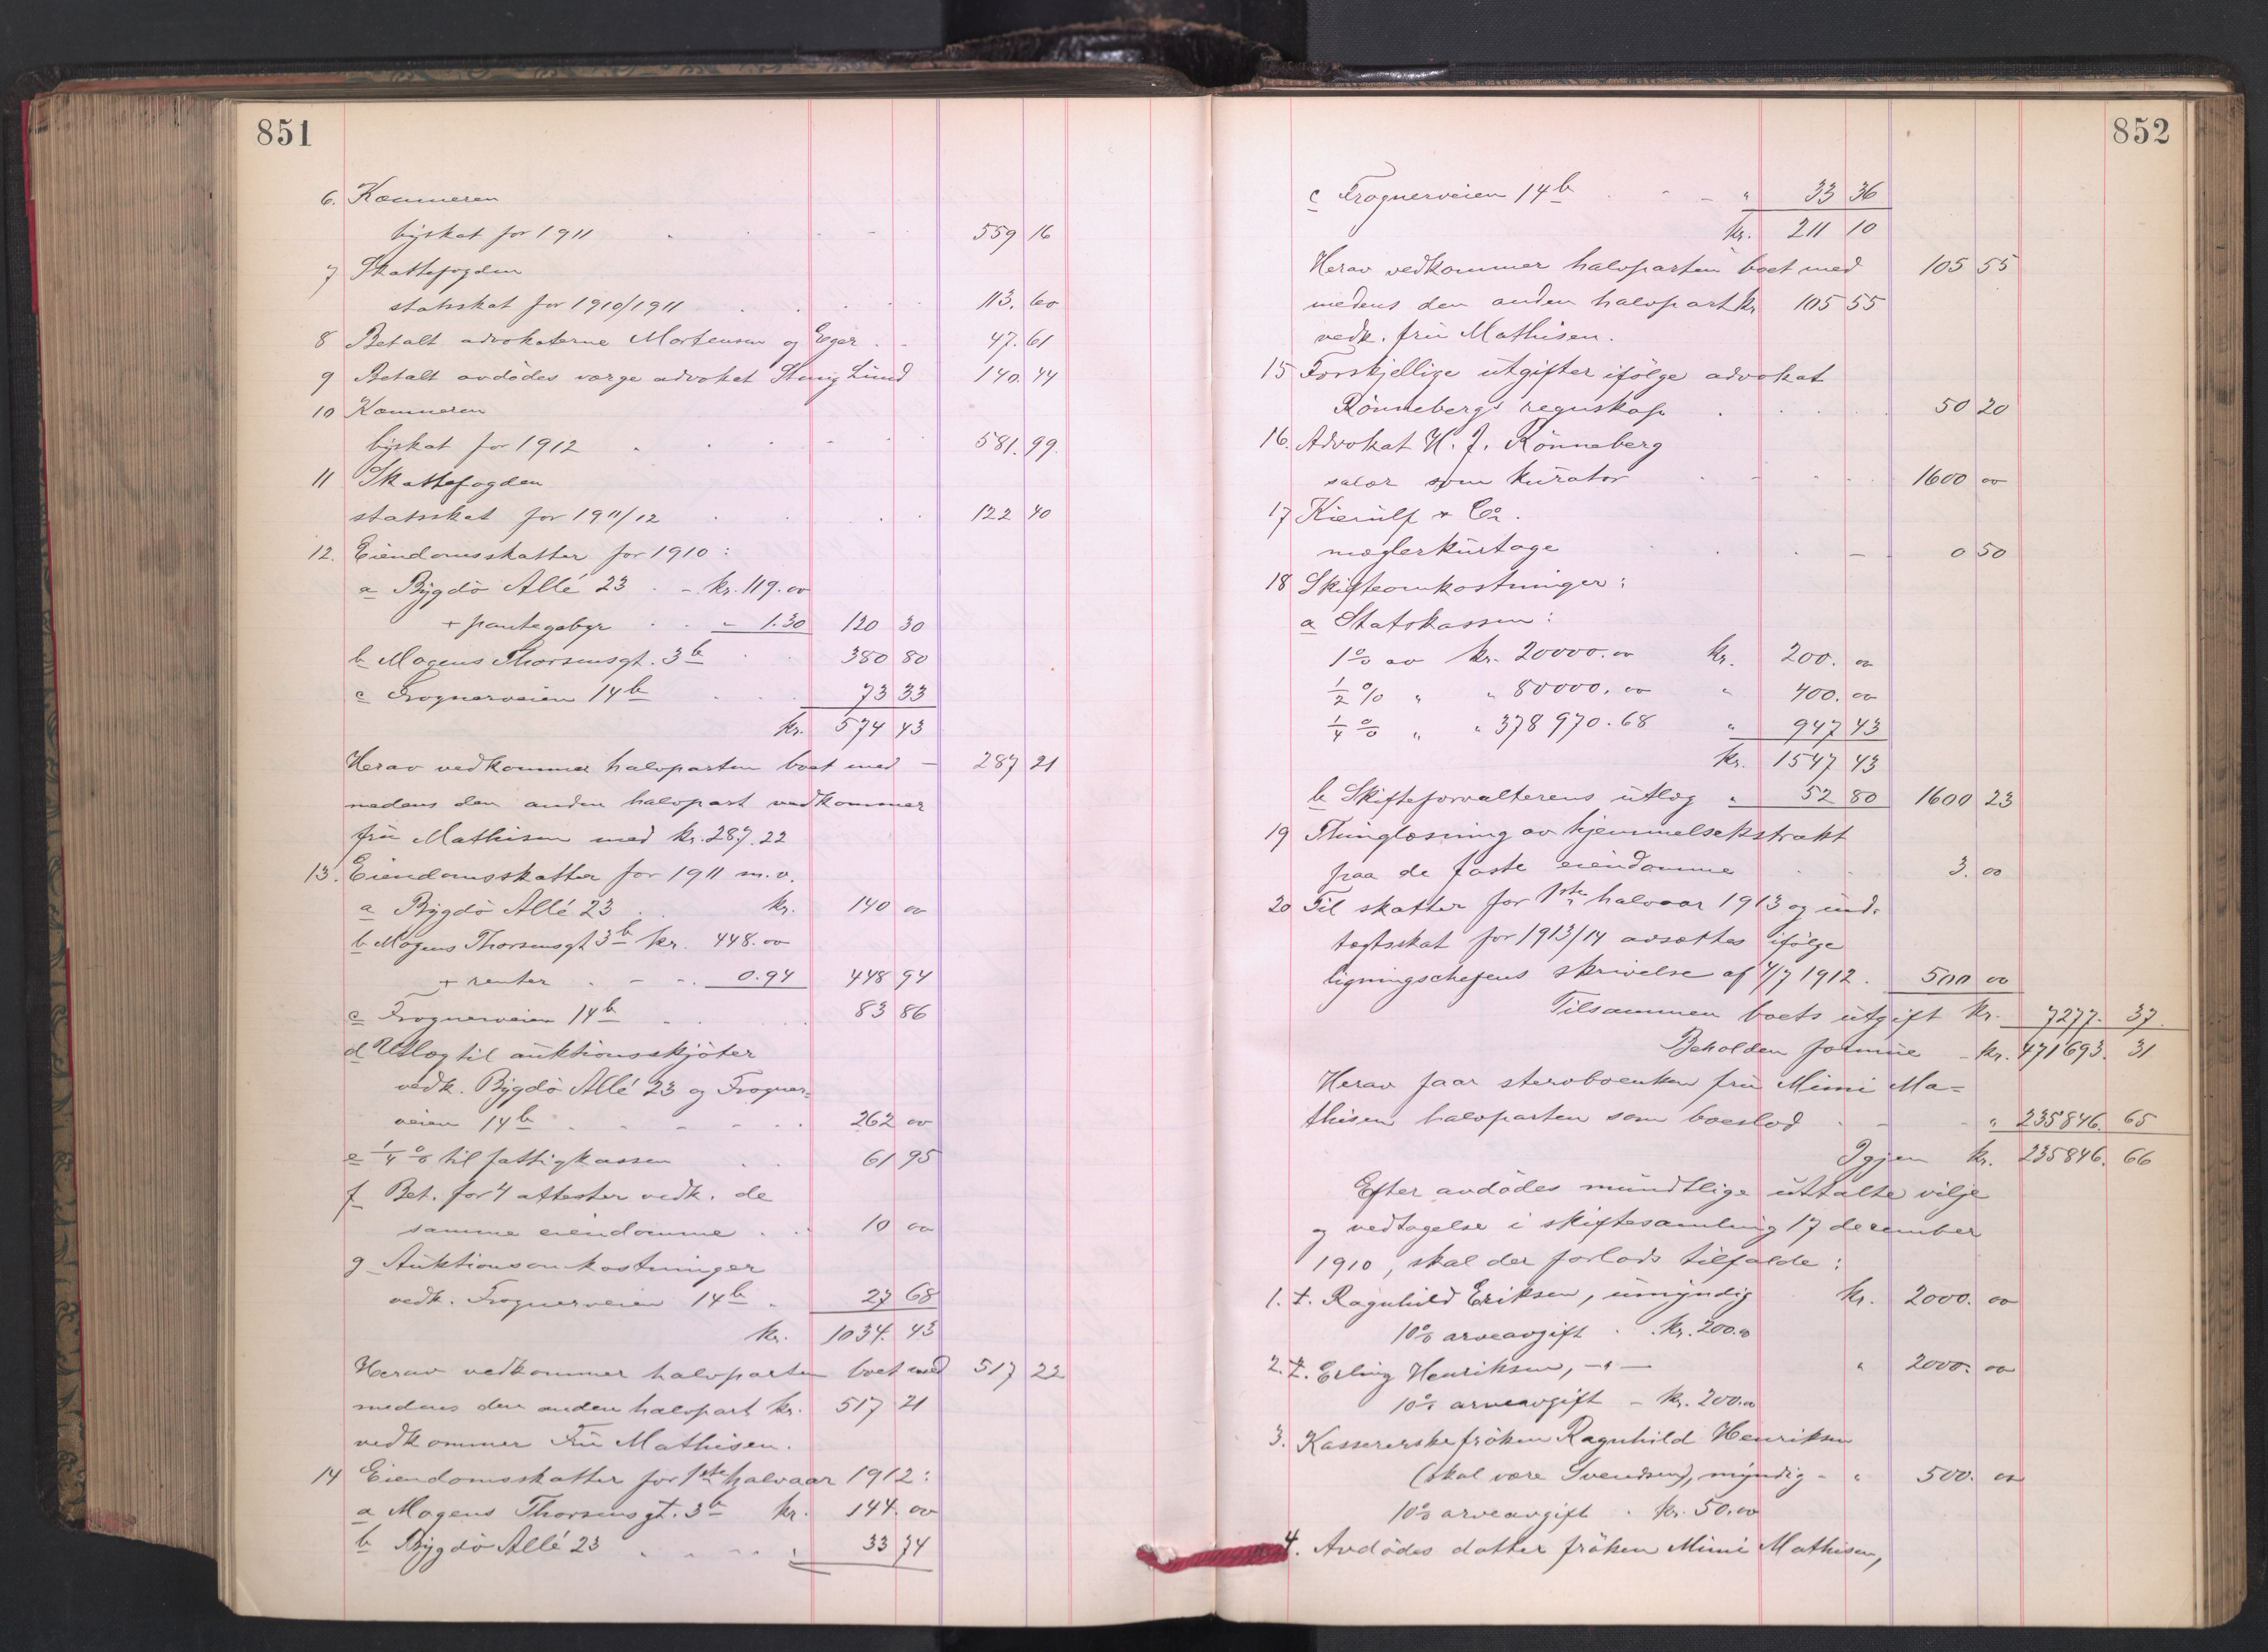 851
6. Kæmneren
byskat for 1911 559 16
7 Skattefogden
statsskat for 1910/1911 113. 60
8 Betalt advokaterne Mortensen og Eger 47. 61
9 Betalt avdödes værge advokat Lund 140. 44
10 Kæmneren
byskat for 1912 581. 99
11 Skattefogden
statsskat for 1911/12 122 40
12. Eiendomsskatter for 1910:
a Bygdö Allé 23 - kr. 119. 00
+ pantegebyr " 1.30 120 30
b Mogens Thorsensgt. 3b 380 80
c Frognerveien 14b 73 33
kr. 574 43
Herav vedkommer halvparten boet med 287 21
medens den anden halvpart vedkommer
fru Mathisen med kr. 287.22
13. Eiendomsskatter for 1911 m.v.
a Bygdö Allé 23 kr. 140 00
b Mogens Thorsensgt 3b kr. 448.00
+ renter - - 0.94 448 94
c Frognerveien 14b 83 86
d Utlæg til auktionsskjöter
vedk. Bygdö Allé 23 og Frogner=
veien 14b 262 00
e 1/4 % til fattigkassen 61 95
f Bet. for 4 attester vedk. de
samme eiendomme 10 00
g Auktionsomkostninger
vedk. Frognerveien 14b 27 68
kr. 1034. 43
Herav vedkommer halvparten boet med 517 22
medens den anden halvpart kr. 517 21
vedkommer Fru Mathisen.
14 Eiendomsskatter for 1ste halvaar 1912:
a Mogens Thorsensgt. 3b kr. 144. 00
b Bygdö Allé 23 " 33 74
852
c Frognerveien 14b " 33 36
kr. 211 10
Herav vedkommer halvparten boet med 105 55
medens den anden halvpart kr 105 55
vedk. fru Mathisen.
15 Forskjellige utgifter ifölge advokat
Rönnebergs regnskap 50 20
16. Advokat H. J. Rönneberg
salær som kurator 1600 00
17 Kierulf & Co.
mæglerkurtage 0 50
18 Skifteomkostninger:
a Statskassen:
1% av kr. 20000.00 kr. 200. 00
1/2 % " " 80000.00 " 400. 00
1/4 % " " 378970.68 " 947 43
kr. 1547 43
b Skifteforvalterens utlæg " 52 80 1600 23
19 Thinglæsning av hjemmelsekstrakt
paa de faste eiendomme 3. 00
20 Til skatter for 1ste halvaar 1913 og ind-
tægtsskat for 1913/14 avsættes ifölge
ligningschefens skrivelse af 4/7 1912. 500 00
Tilsammen boets utgift kr. 7277. 37.
Beholden formue - kr. 471693. 31
Herav faar stervboenken fru Mimi Ma=
thisen halvparten som boeslod " 235846. 65
Igjen kr. 235846. 66
Efter avdödes mundtlige uttalte vilje
og vedtagelse i skiftesamling 17 december
1910, skal der forlods tilfalde:
1. Ragnhild Eriksen, umyndig kr. 2000. 00
10% arveavgift kr. 200.00
2. Erling Henriksen, -"- " 2000. 00
10% arveavgift - kr. 200.00
3. Kassererske fröken Ragnhild Henriksen
(skal være Svendsen), myndig - " 500. 00
10% arveavgift kr. 50.00
4. Avdödes datter fröken Mimi Mathisen,